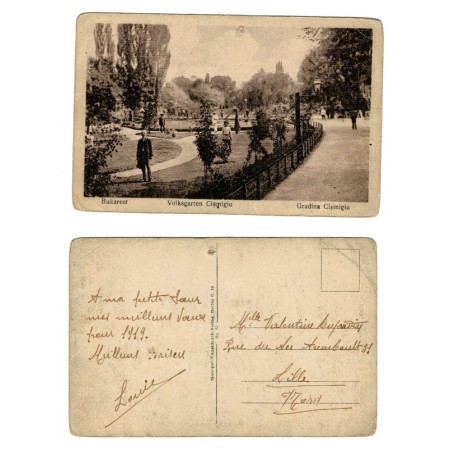 Bukarest Volksgarten Cişmigiu Gradina Cişmigiu
A ma petite Sœur
mes meilleurs vœux
pour 1919.
Meilleurs Baisers
Louis
Mlle Valentine
Rue du
Lille
Nord